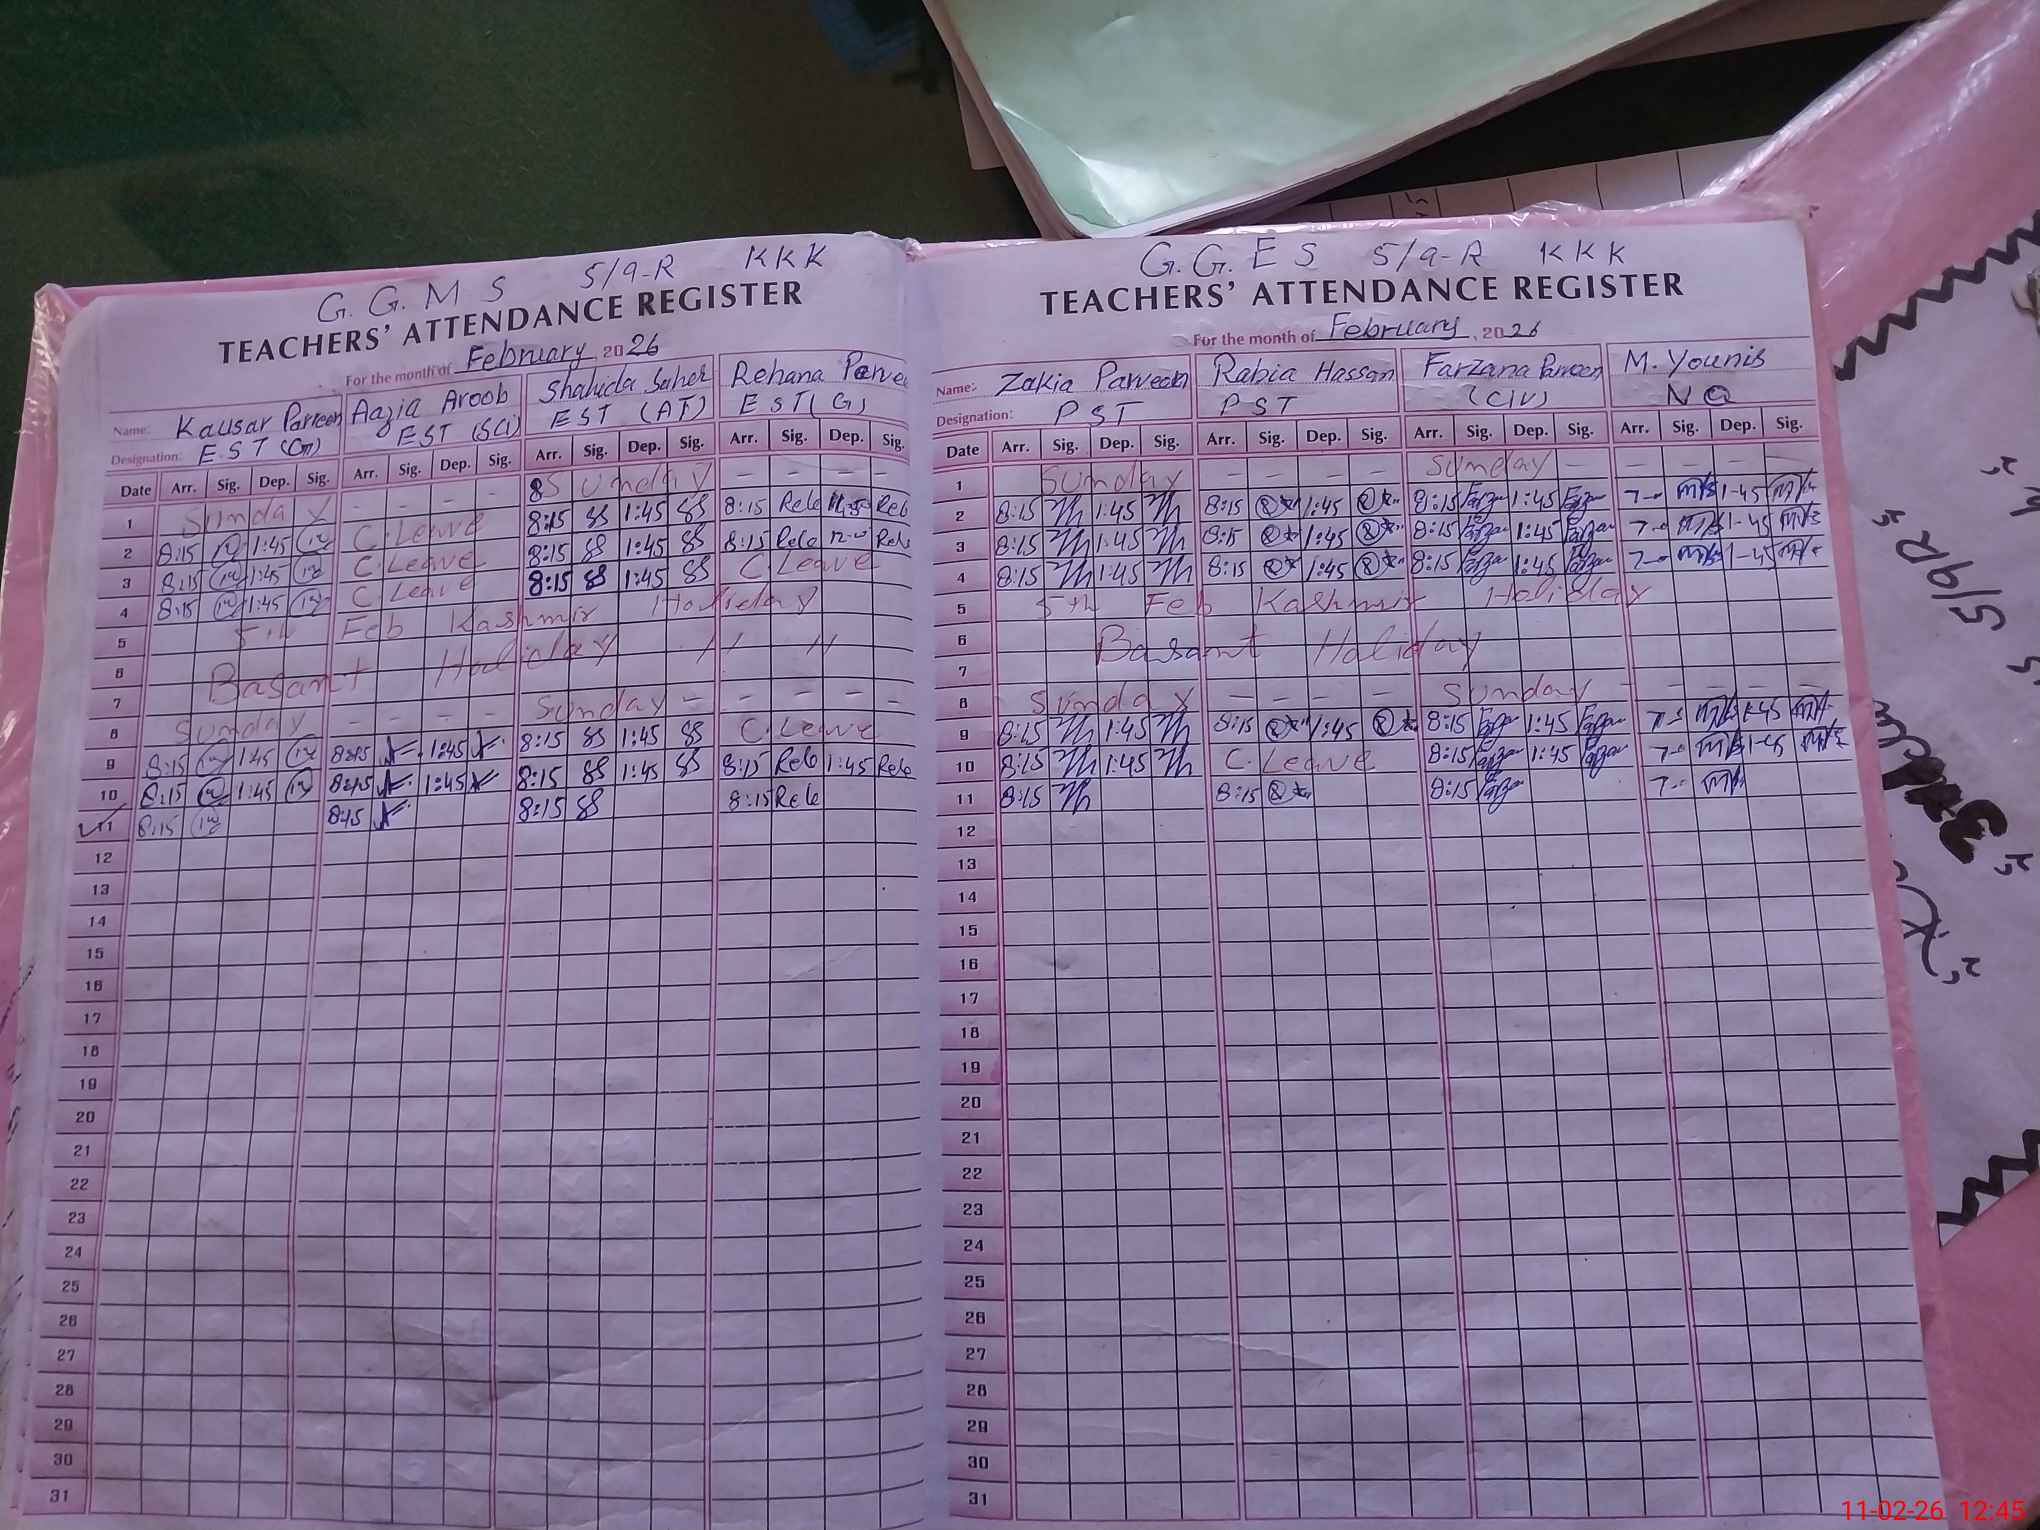 G. G. M S 5/9-R KKK
TEACHERS' ATTENDANCE REGISTER
For the month of February, 2026
Name: Kausar Parveen Aazia Aroob Shahida Saher Rehana Parvee
Designation: EST (G) EST (SCi) EST (AT) EST (G)
Date Arr. Sig. Dep. Sig. Arr. Sig. Dep. Sig. Arr. Sig. Dep. Sig. Arr. Sig. Dep. Sig.
1 Sunday - - - - Sunday - - - -
2 8:15 1:45 C.Leave 8:15 SS 1:45 SS 8:15 Rele Rele
3 8:15 1:45 C.Leave 8:15 SS 1:45 SS 8:15 Rele Rele
4 8:15 1:45 C.Leave 8:15 SS 1:45 SS C.Leave
5 5th Feb Kashmir Holiday
6 Basant Holiday " "
7
8 Sunday - - - - Sunday - - - - -
9 8:15 1:45 8:45 1:45 8:15 SS 1:45 SS C.Leave
10 8:15 1:45 8:45 1:45 8:15 SS 1:45 SS 8:15 Rele 1:45 Rele
11 8:15 8:45 8:15 SS 8:15 Rele
12
13
14
15
16
17
18
19
20
21
22
23
24
25
26
27
28
29
30
31
G. G. E S 5/9-R KKK
TEACHERS' ATTENDANCE REGISTER
For the month of February, 2026
Name: Zakia Parveen Rabia Hassan Farzana Parveen M. Younis
Designation: PST PST (CIV) NQ
Date Arr. Sig. Dep. Sig. Arr. Sig. Dep. Sig. Arr. Sig. Dep. Sig. Arr. Sig. Dep. Sig.
1 Sunday - - - - Sunday - - - - -
2 8:15 1:45 8:15 1:45 8:15 1:45 1-45
3 8:15 1:45 8:15 1:45 8:15 1:45 1-45
4 8:15 1:45 8:15 1:45 8:15 1:45 1-45
5 5th Feb Kashmir Holiday
6 Basant Holiday
7
8 Sunday - - - - Sunday - - - - -
9 8:15 1:45 8:15 1:45 8:15 1:45 1-45
10 8:15 1:45 C.Leave 8:15 1:45 1-45
11 8:15 8:15 8:15
12
13
14
15
16
17
18
19
20
21
22
23
24
25
26
27
28
29
30
31
5/9R
11-02-26 12:45